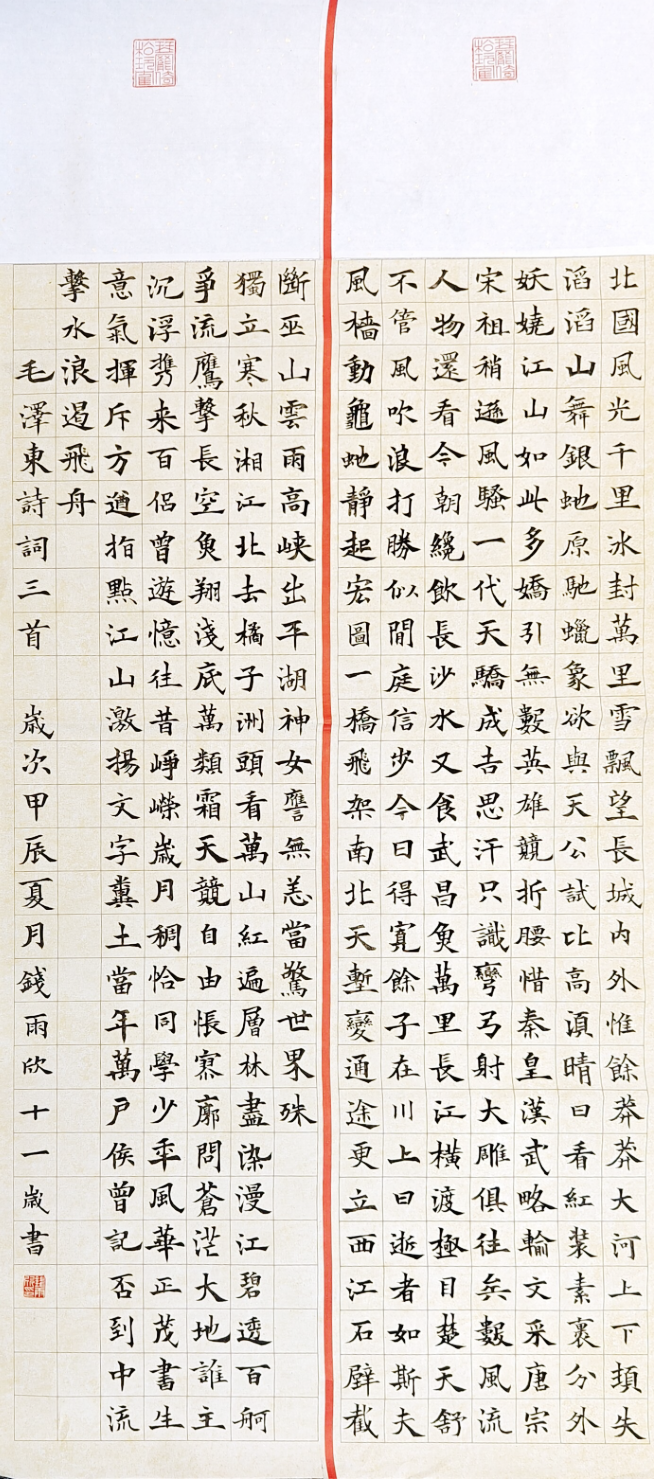 北國風光千里冰封萬里雪飄望長城内外惟餘莽莽大河上下頓失
滔滔山舞銀虵原馳蠟象欲與天公試比高湏晴日看紅裝素裹分外
妖嬈江山如此多嬌引無數英雄競折腰惜秦皇漢武略輸文采唐宗
宋祖稍遜風騷一代天驕成吉思汗只識彎弓射大雕俱往矣數風流
人物還看今朝纔飲長沙水又食武昌魚萬里長江橫渡極目楚天舒
不管風吹浪打勝似閒庭信步今日得寬餘子在川上曰逝者如斯夫
風檣動龜虵靜起宏圖一橋飛架南北天塹變通途更立西江石壁截
斷巫山雲雨高峽出平湖神女譍無恙當驚世界殊
獨立寒秋湘江北去橘子洲頭看萬山紅遍層林盡染漫江碧透百舸
爭流鷹擊長空魚翔淺底萬類霜天競自由悵寥廓問蒼茫大地誰主
沉浮攜来百侣曾遊憶往昔崢嶸歲月稠恰同學少年風華正茂書生
意氣揮斥方遒指點江山激揚文字糞土當年萬戶侯曾記否到中流
擊水浪遏飛舟
毛澤東詩詞三首 歲次甲辰夏月錢雨欣十一歲書